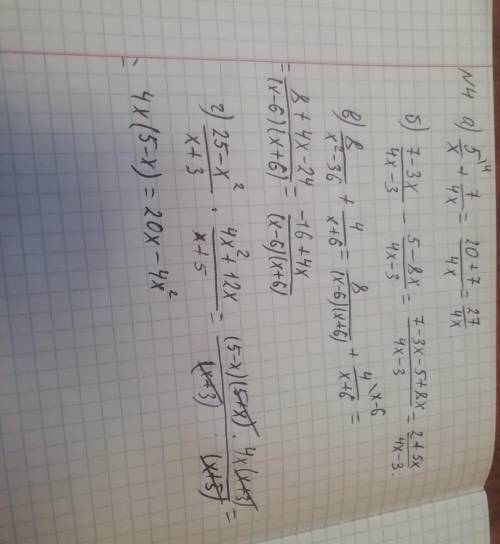 N4 а) 5\4/x + 7/4x = 20+7/4x = 27/4x.
б) 7-3x/4x-3 - 5-8x/4x-3 = 7-3x-5+8x/4x-3 = 2+5x/4x-3.
в) 8/x²-36 + 4/x+6 = 8/(x-6)(x+6) + 4\x-6/x+6 =
= 8+4x-24/(x-6)(x+6) = -16+4x/(x-6)(x+6)
г) 25-x²/x+3 · 4x²+12x/x+5 = (5-x)(5+x)·4x(x+3)/(x+3)·(x+5) =
= 4x(5-x) = 20x-4x²